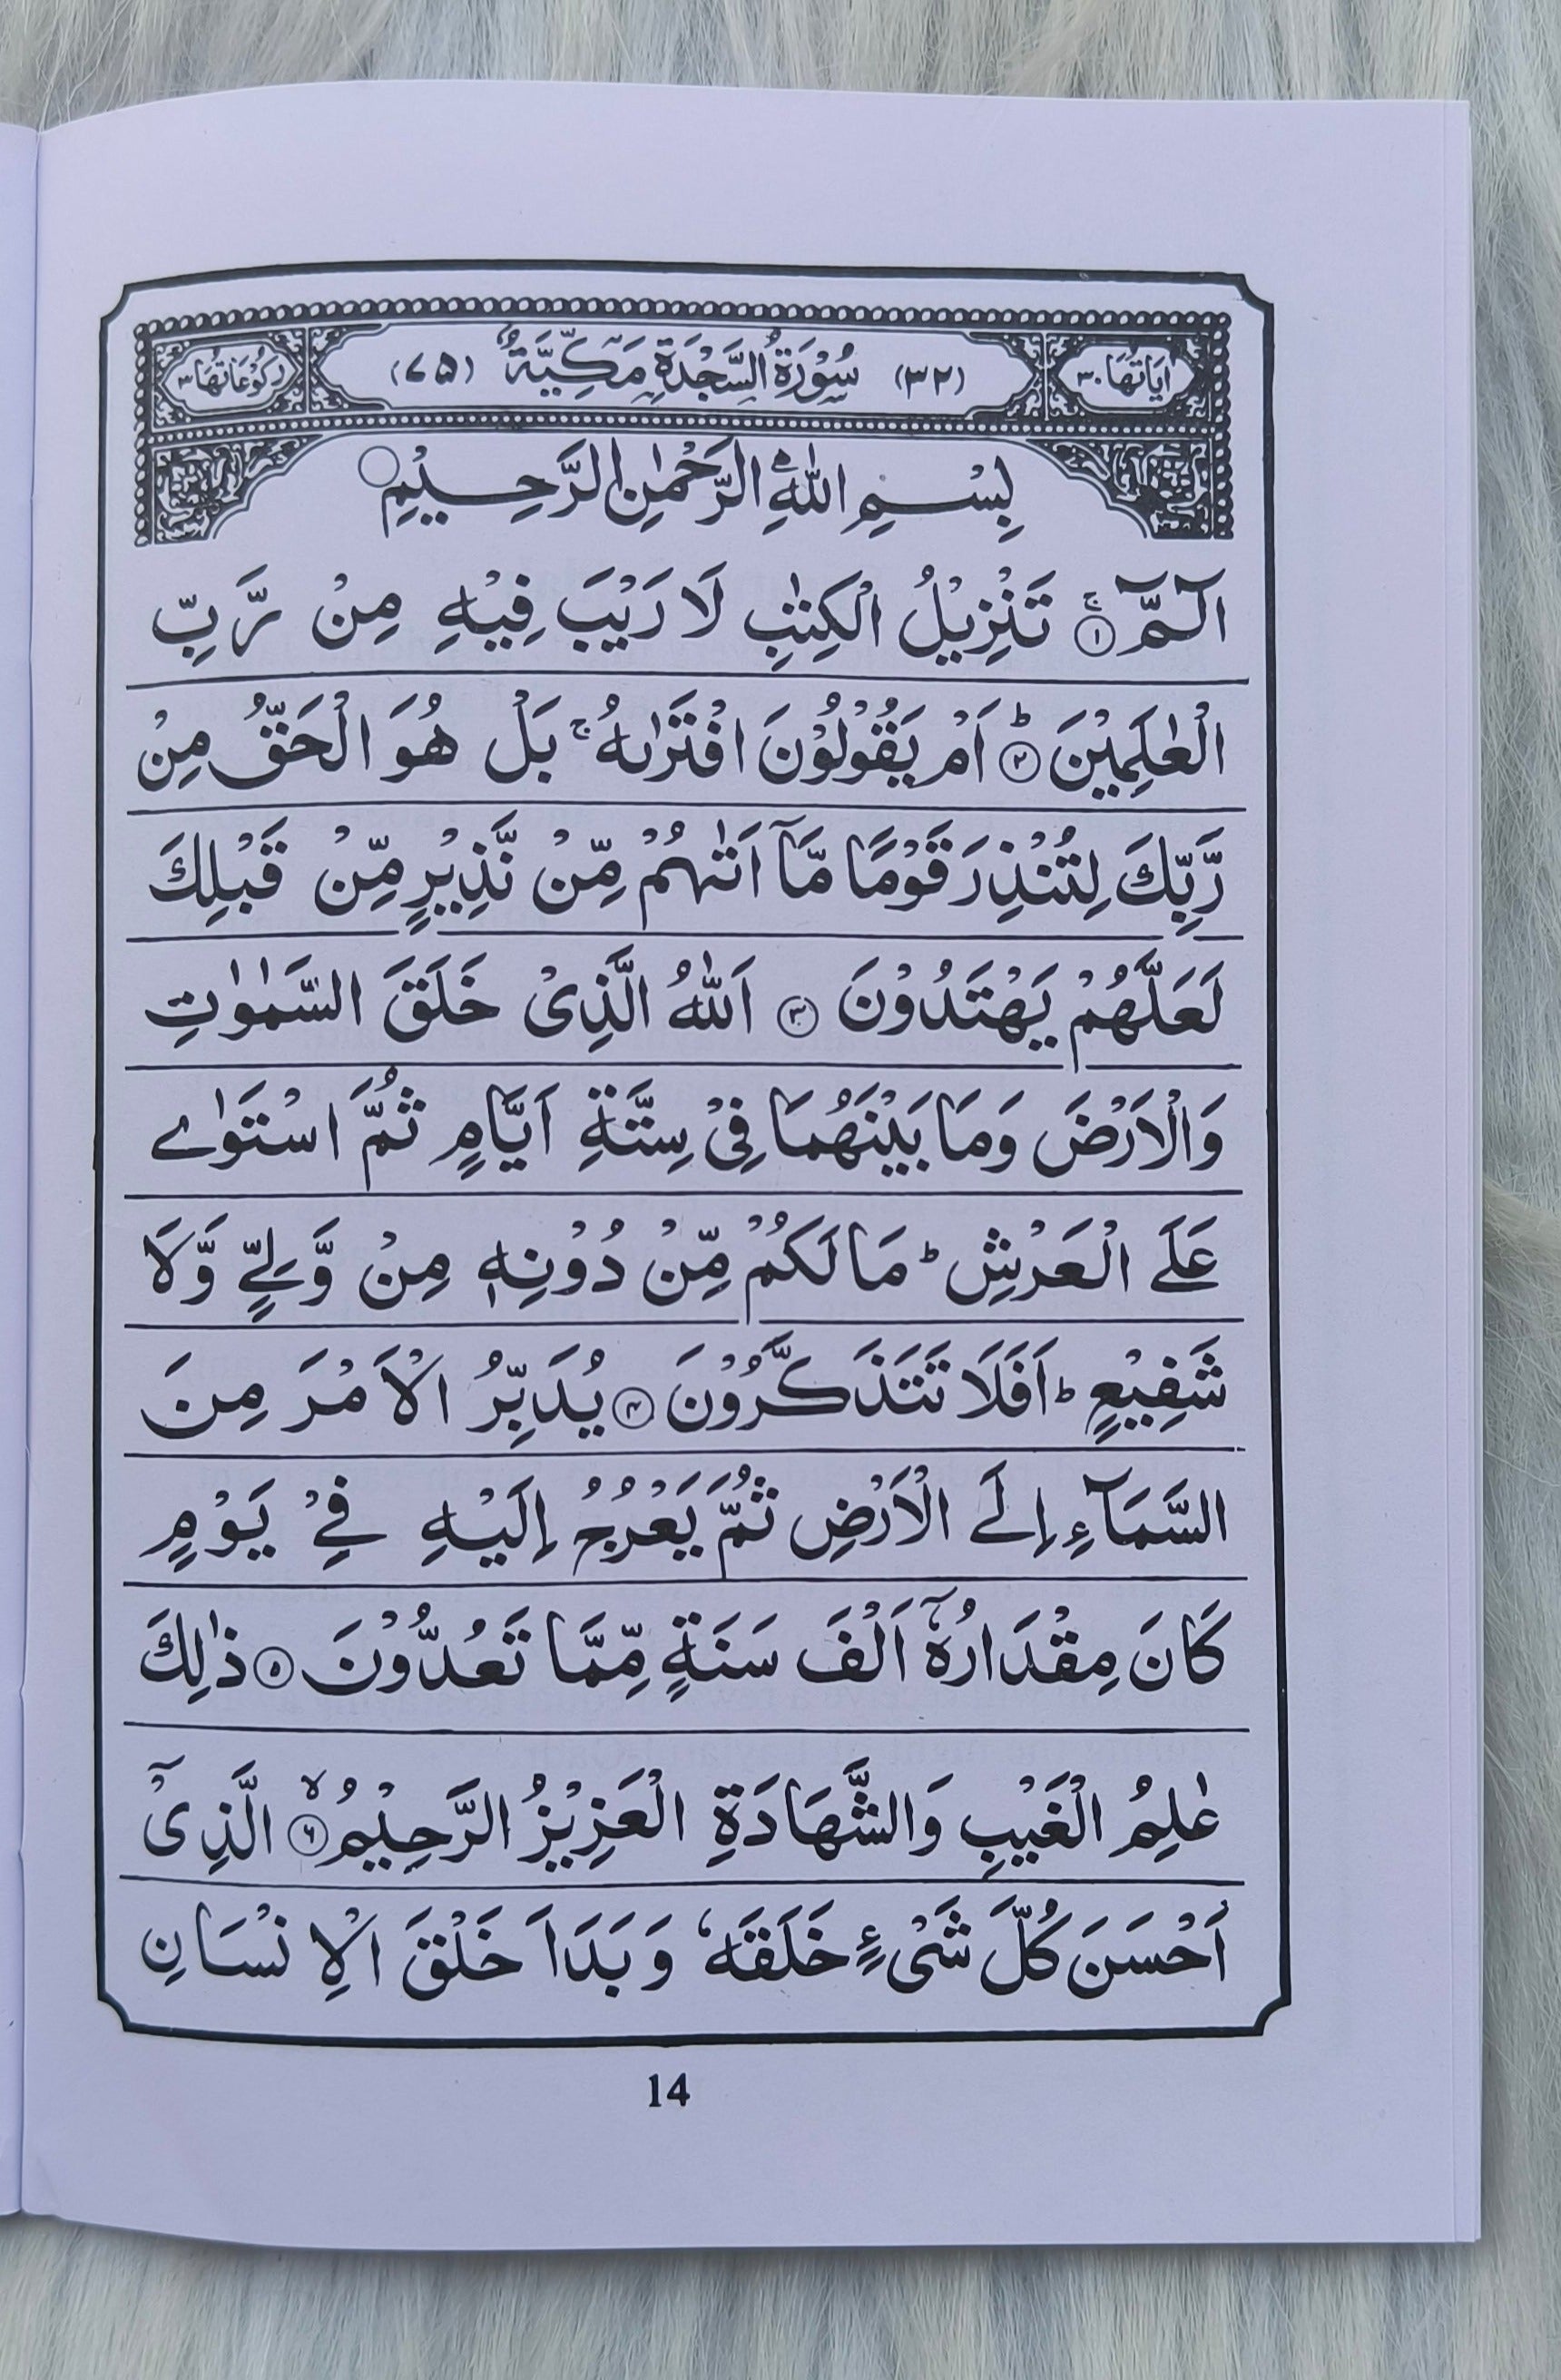 اٰيَاتُهَا ٣٠ (٣٢) سُوْرَةُ السَّجْدَةِ مَكِّيَّةٌ (٧٥) رُكُوْعَاتُهَا ٣
بِسْمِ اللّٰهِ الرَّحْمٰنِ الرَّحِيْمِ
الٓـمّٓ ۚ﴿۱﴾ تَنْزِيْلُ الْكِتٰبِ لَا رَيْبَ فِيْهِ مِنْ رَّبِّ
الْعٰلَمِيْنَ ؕ﴿۲﴾ اَمْ يَقُوْلُوْنَ افْتَرٰىهُ ۚ بَلْ هُوَ الْحَقُّ مِنْ
رَّبِّكَ لِتُنْذِرَ قَوْمًا مَّآ اَتٰىهُمْ مِّنْ نَّذِيْرٍ مِّنْ قَبْلِكَ
لَعَلَّهُمْ يَهْتَدُوْنَ ﴿۳﴾ اَللّٰهُ الَّذِىْ خَلَقَ السَّمٰوٰتِ
وَالْاَرْضَ وَمَا بَيْنَهُمَا فِىْ سِتَّةِ اَيَّامٍ ثُمَّ اسْتَوٰے
عَلَے الْعَرْشِ ؕ مَا لَكُمْ مِّنْ دُوْنِهٖ مِنْ وَّلِیٍّ وَّلَا
شَفِيْعٍ ؕ اَفَلَا تَتَذَكَّرُوْنَ ﴿۴﴾ يُدَبِّرُ الْاَمْرَ مِنَ
السَّمَآءِ اِلَے الْاَرْضِ ثُمَّ يَعْرُجُ اِلَيْهِ فِیْ يَوْمٍ
كَانَ مِقْدَارُهٗٓ اَلْفَ سَنَةٍ مِّمَّا تَعُدُّوْنَ ﴿۵﴾ ذٰلِكَ
عٰلِمُ الْغَيْبِ وَالشَّهَادَةِ الْعَزِيْزُ الرَّحِيْمُ ۙ﴿۶﴾ الَّذِىْٓ
اَحْسَنَ كُلَّ شَىْءٍ خَلَقَهٗ وَبَدَاَ خَلْقَ الْاِنْسَانِ
14